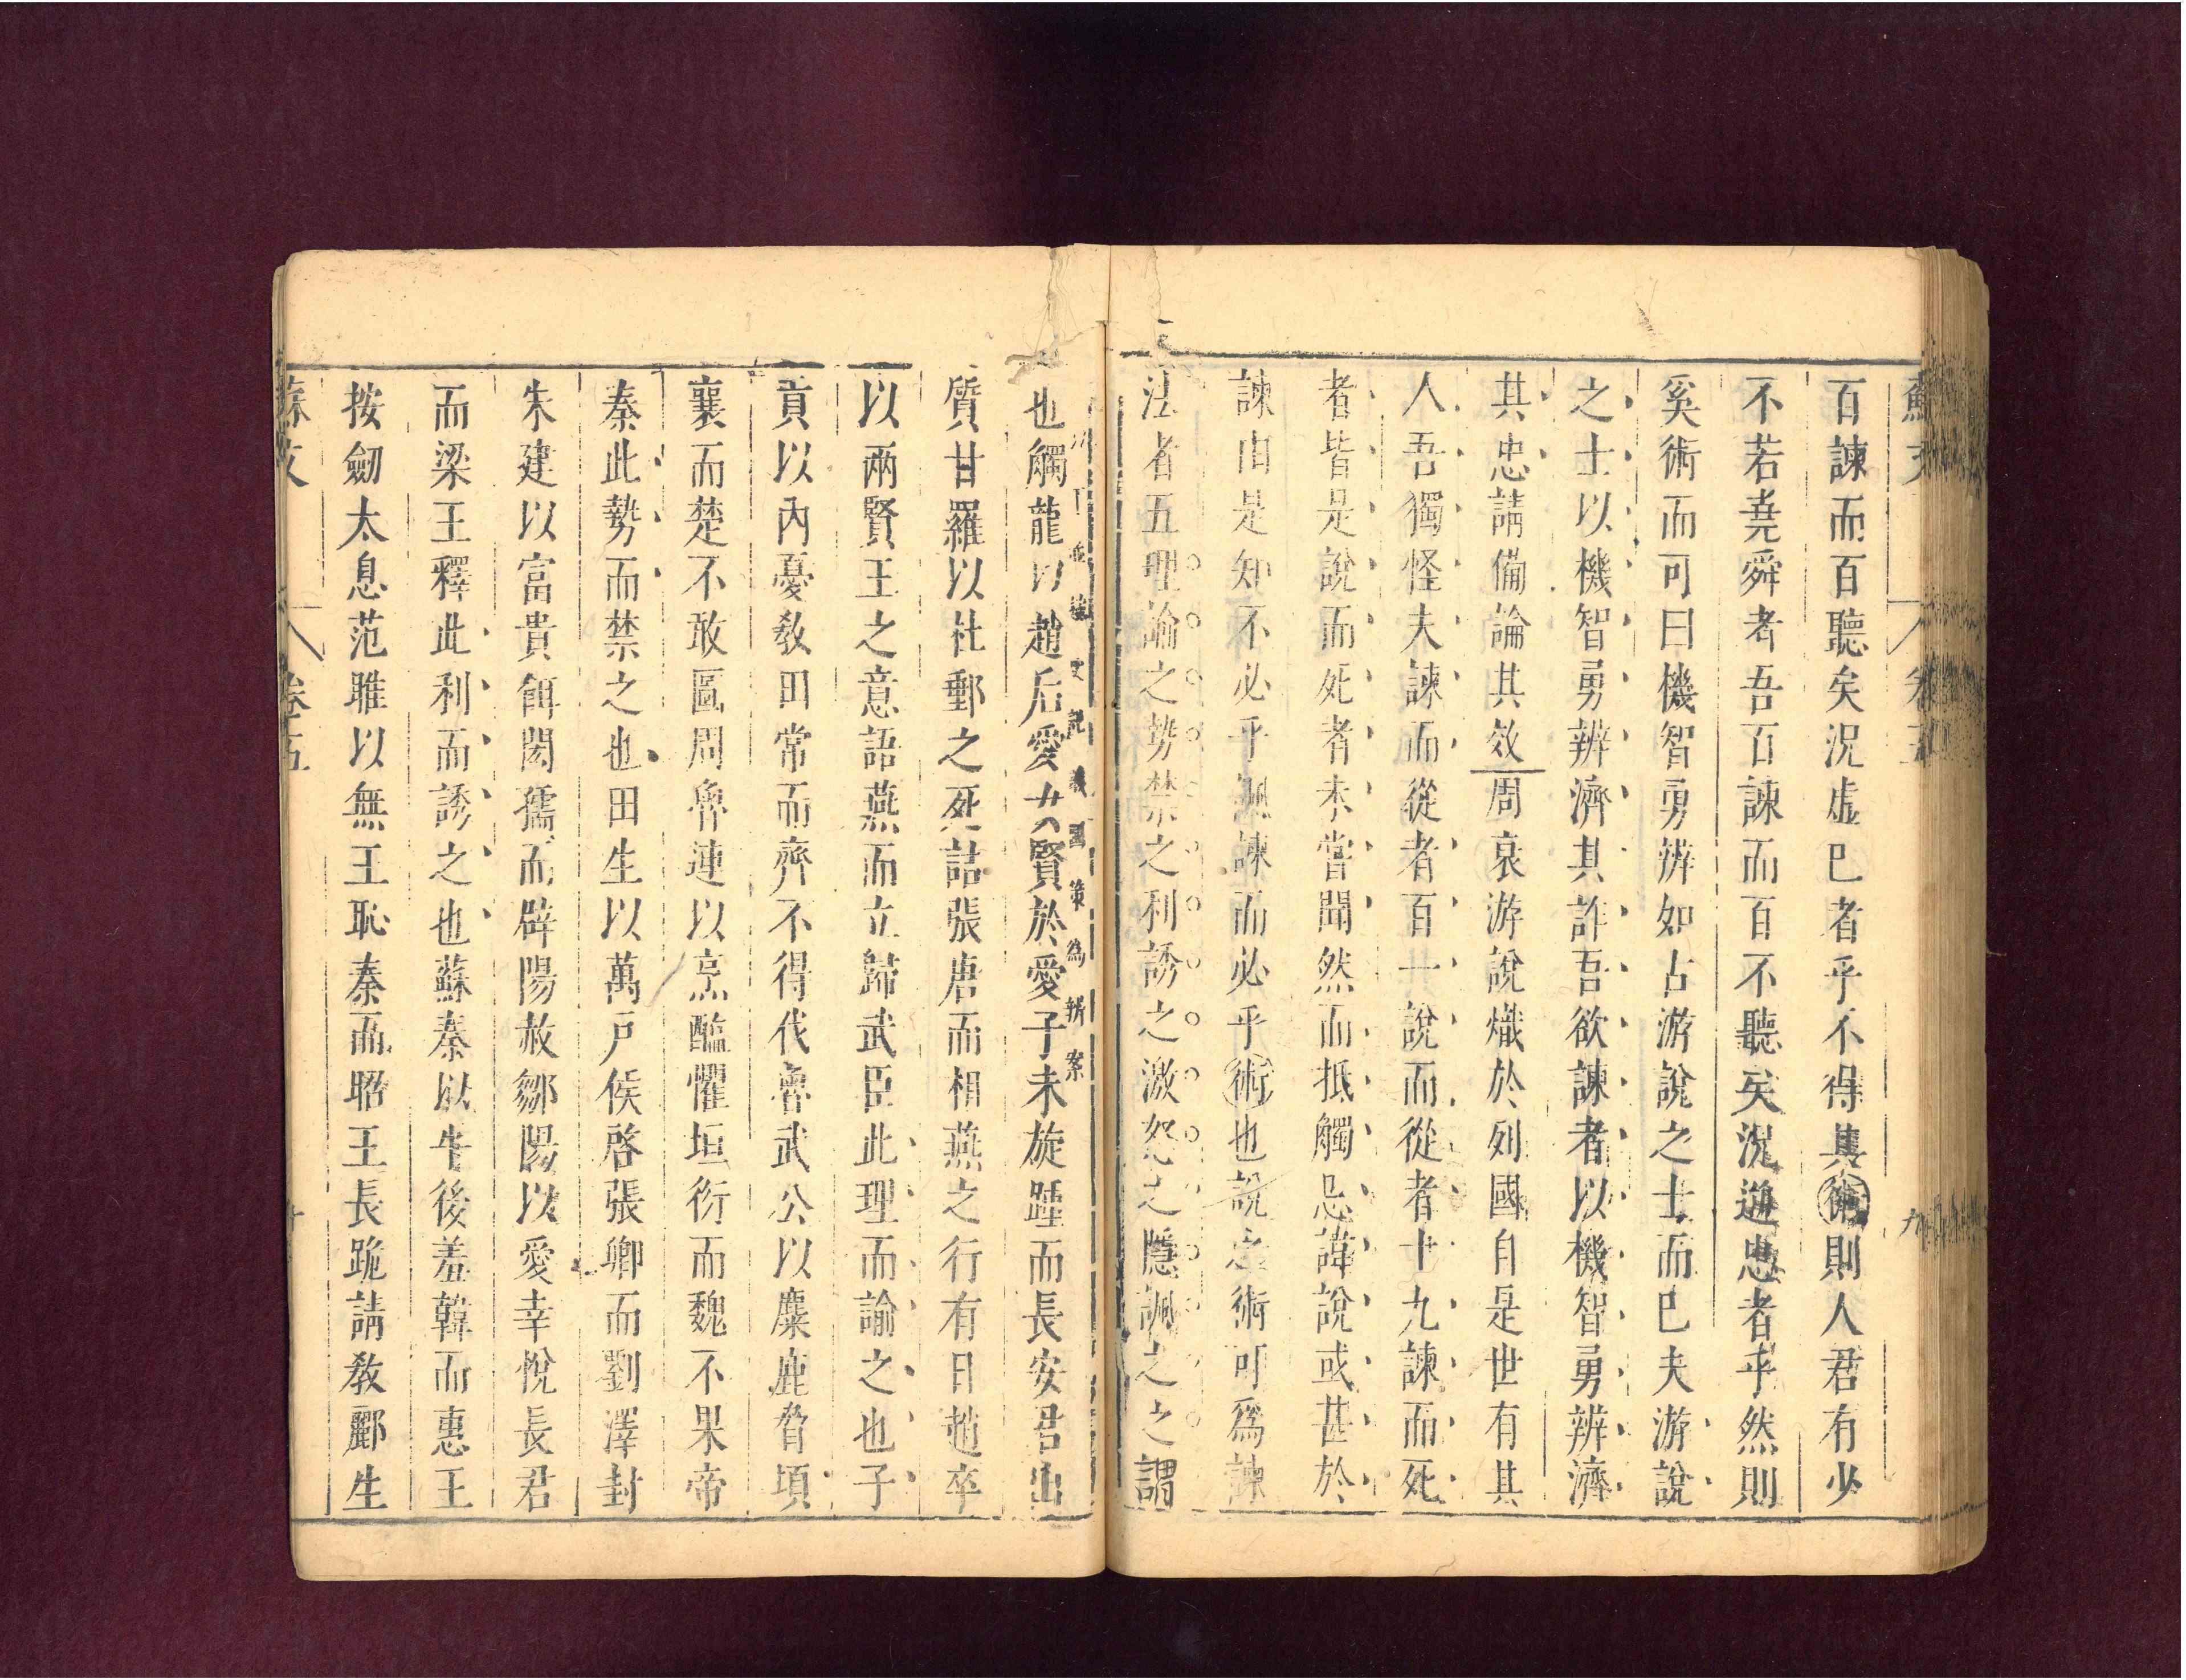 蘇文 卷五 九
百諫而百聽矣況虛已者乎不得其術則人君有少
不若堯舜者吾百諫而百不聽矣況逆忠者乎然則
奚術而可曰機智勇辨如古游說之士而已夫游說
之士以機智勇辨濟其詐吾欲諫者以機智勇辨濟
其忠請備論其效周衰游說熾於列國自是世有其
人吾獨怪夫諫而從者百一說而從者十九諫而死
者皆是說而死者未嘗聞然而抵觸忌諱說或甚於
諫由是知不必乎諷諫而必乎術也說之術可爲諫
法者五理諭之勢禁之利誘之激怒之隱諷之之謂
也觸龍以趙后愛女賢於愛子未旋踵而長安君出
質甘羅以杜郵之死詰張唐而相燕之行有日趙卒
以兩賢王之意語燕而立歸武臣此理而諭之也子
貢以內憂教田常而齊不得伐魯武公以麋鹿脅頃
襄而楚不敢圖周魯連以烹醢懼垣衍而魏不果帝
秦此勢而禁之也田生以萬戶侯啓張卿而劉澤封
朱建以富貴餌閎孺而辟陽赦鄒陽以愛幸悅長君
而梁王釋此利而誘之也蘇秦以牛後羞韓而惠王
按劒太息范雎以無王恥秦而昭王長跪請教酈生
蘇文 卷五